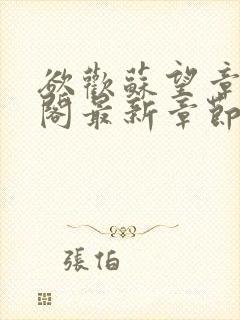 欲歡蘇望章
閣最新章節
張怕